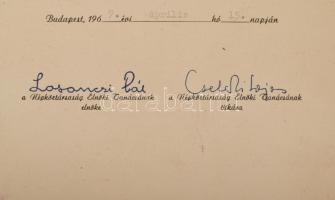 Budapest, 1967. évi április hó 15. napján
Losonczi Pál Cseterki Lajos
a Népköztársaság Elnöki Tanácsának a Népköztársaság Elnöki Tanácsának
elnöke titkára
darabanth